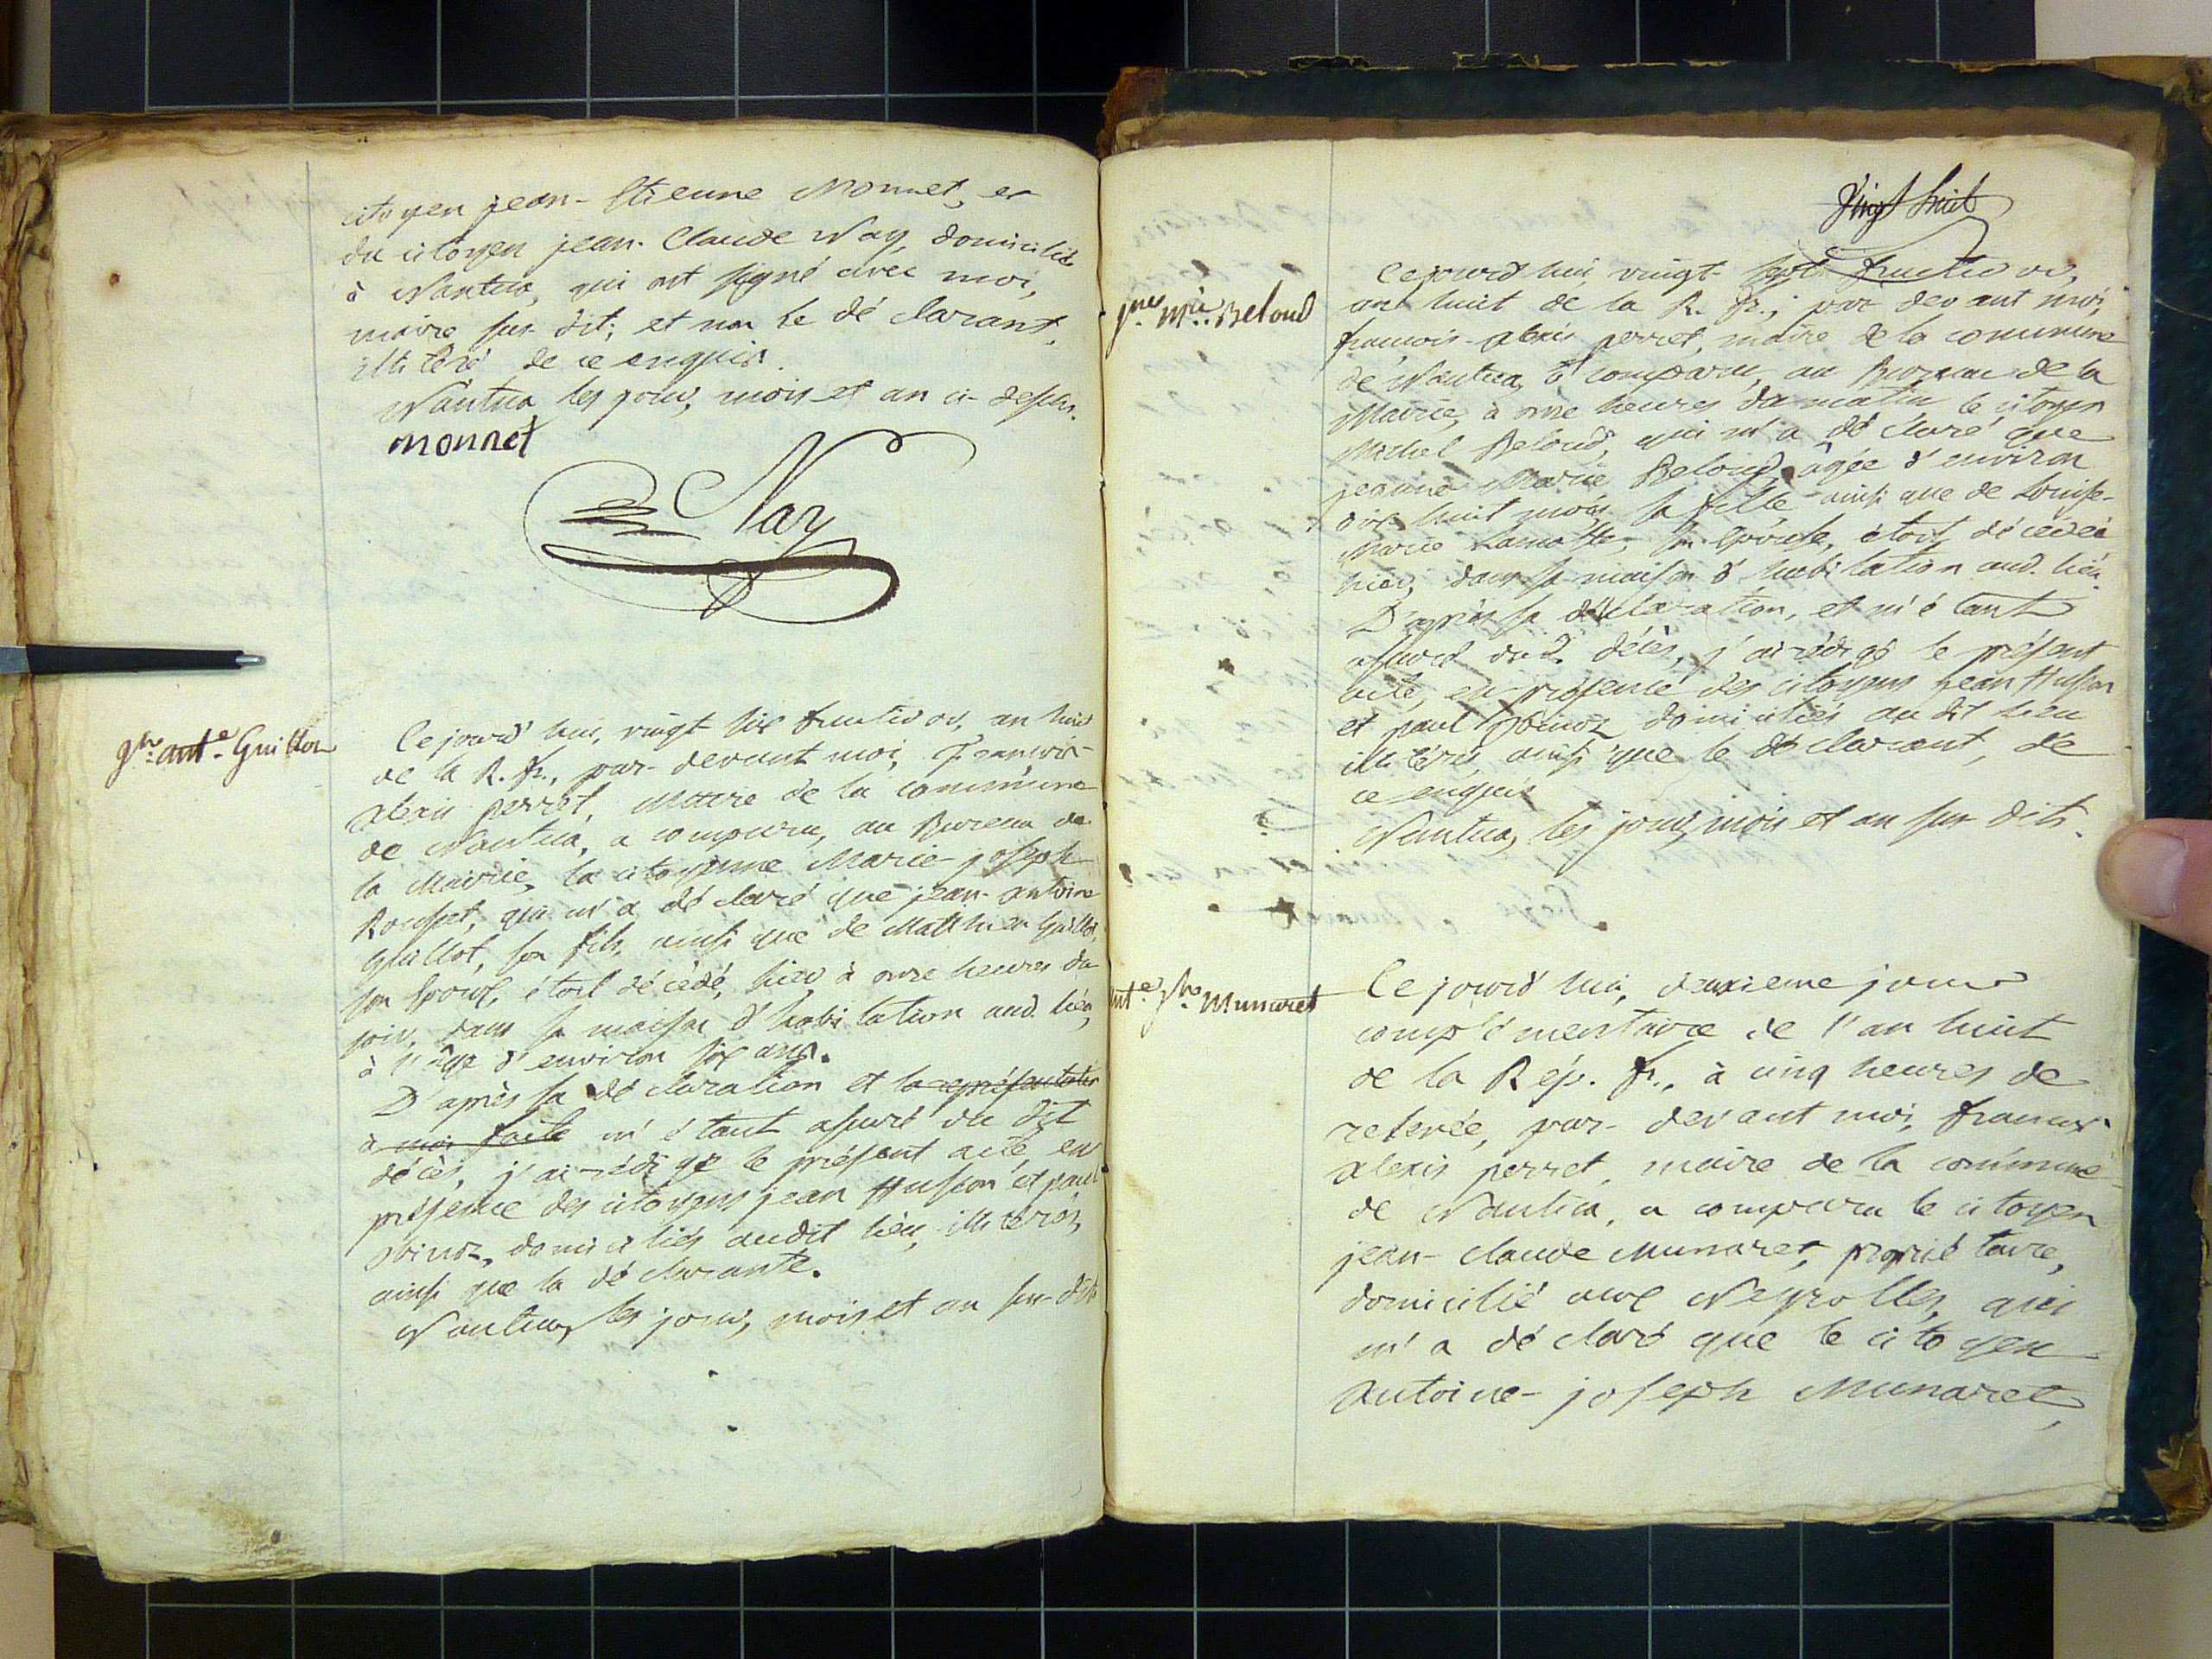 citoyen jean-Etienne Monnet, et
du citoyen jean-Claude Nay, domiciliés
à Nantua, qui ont signé avec moi,
maire sus-dit; et non le déclarant,
illitéré de ce enquis.
Nantua les jour, mois et an ci-dessus.
monnet
Nay
jn. ante. Guillot
Cejourd'hui, vingt-six fructidor, an huit
de la R. fr., par-devant moi, françois-
alexis perret, Maire de la commune
de Nantua, a comparu, au Bureau de
la Mairie, la citoyenne Marie-joseph
Rousset, qui m'a déclaré que jean-antoine
Guillot, son fils, ainsi que de Matthieu Guillot,
son Epoux, étoit décédé, hier à onze heures du
soir, dans sa maison d'habitation aud. lieu,
à l'âge d'environ six ans.
D'après sa déclaration et la représentation
à moi faite m'étant assuré du dit
décès, j'ai rédigé le présent acte, en
présence des citoyens jean Husson et paul
, domiciliés audit lieu, illitérés,
ainsi que la déclarante.
Nantua, les jour, mois et an sus-dits
Vingt huit
jne. Mie. Beloud
Cejourd'hui, vingt-sept fructidor,
an huit de la R. fr., par devant moi,
françois-alexis perret, maire de la commune
de Nantua, a comparu, au Bureau de la
Mairie, à onze heures du matin le citoyen
Michel Beloud, qui m'a déclaré que
jeanne Marie Beloud, âgée d'environ
dix huit mois, sa fille ainsi que de Louise-
Marie Lamotte, son Epouse, étoit décédée
hier, dans sa maison d'habitation aud. lieu.
D'après sa déclaration, et m'étant
assuré dud. décès, j'ai rédigé le présent
acte, en présence des citoyens jean Husson
et paul domiciliés audit lieu
illitérés, ainsi que le déclarant, de
ce enquis
Nantua, les jour, mois et an sus dits.
ante. jh. Munaret
Cejourd'hui, deuxieme jour
complémentaire de l'an huit
de la Rép. fr., à cinq heures de
relevée, par-devant moi, françois
alexis perret, maire de la commune
de Nantua, a comparu le citoyen
jean-claude Munaret, propriétaire,
domicilié aux Neyrolles, qui
m'a déclaré que le citoyen
Antoine-joseph Munaret,